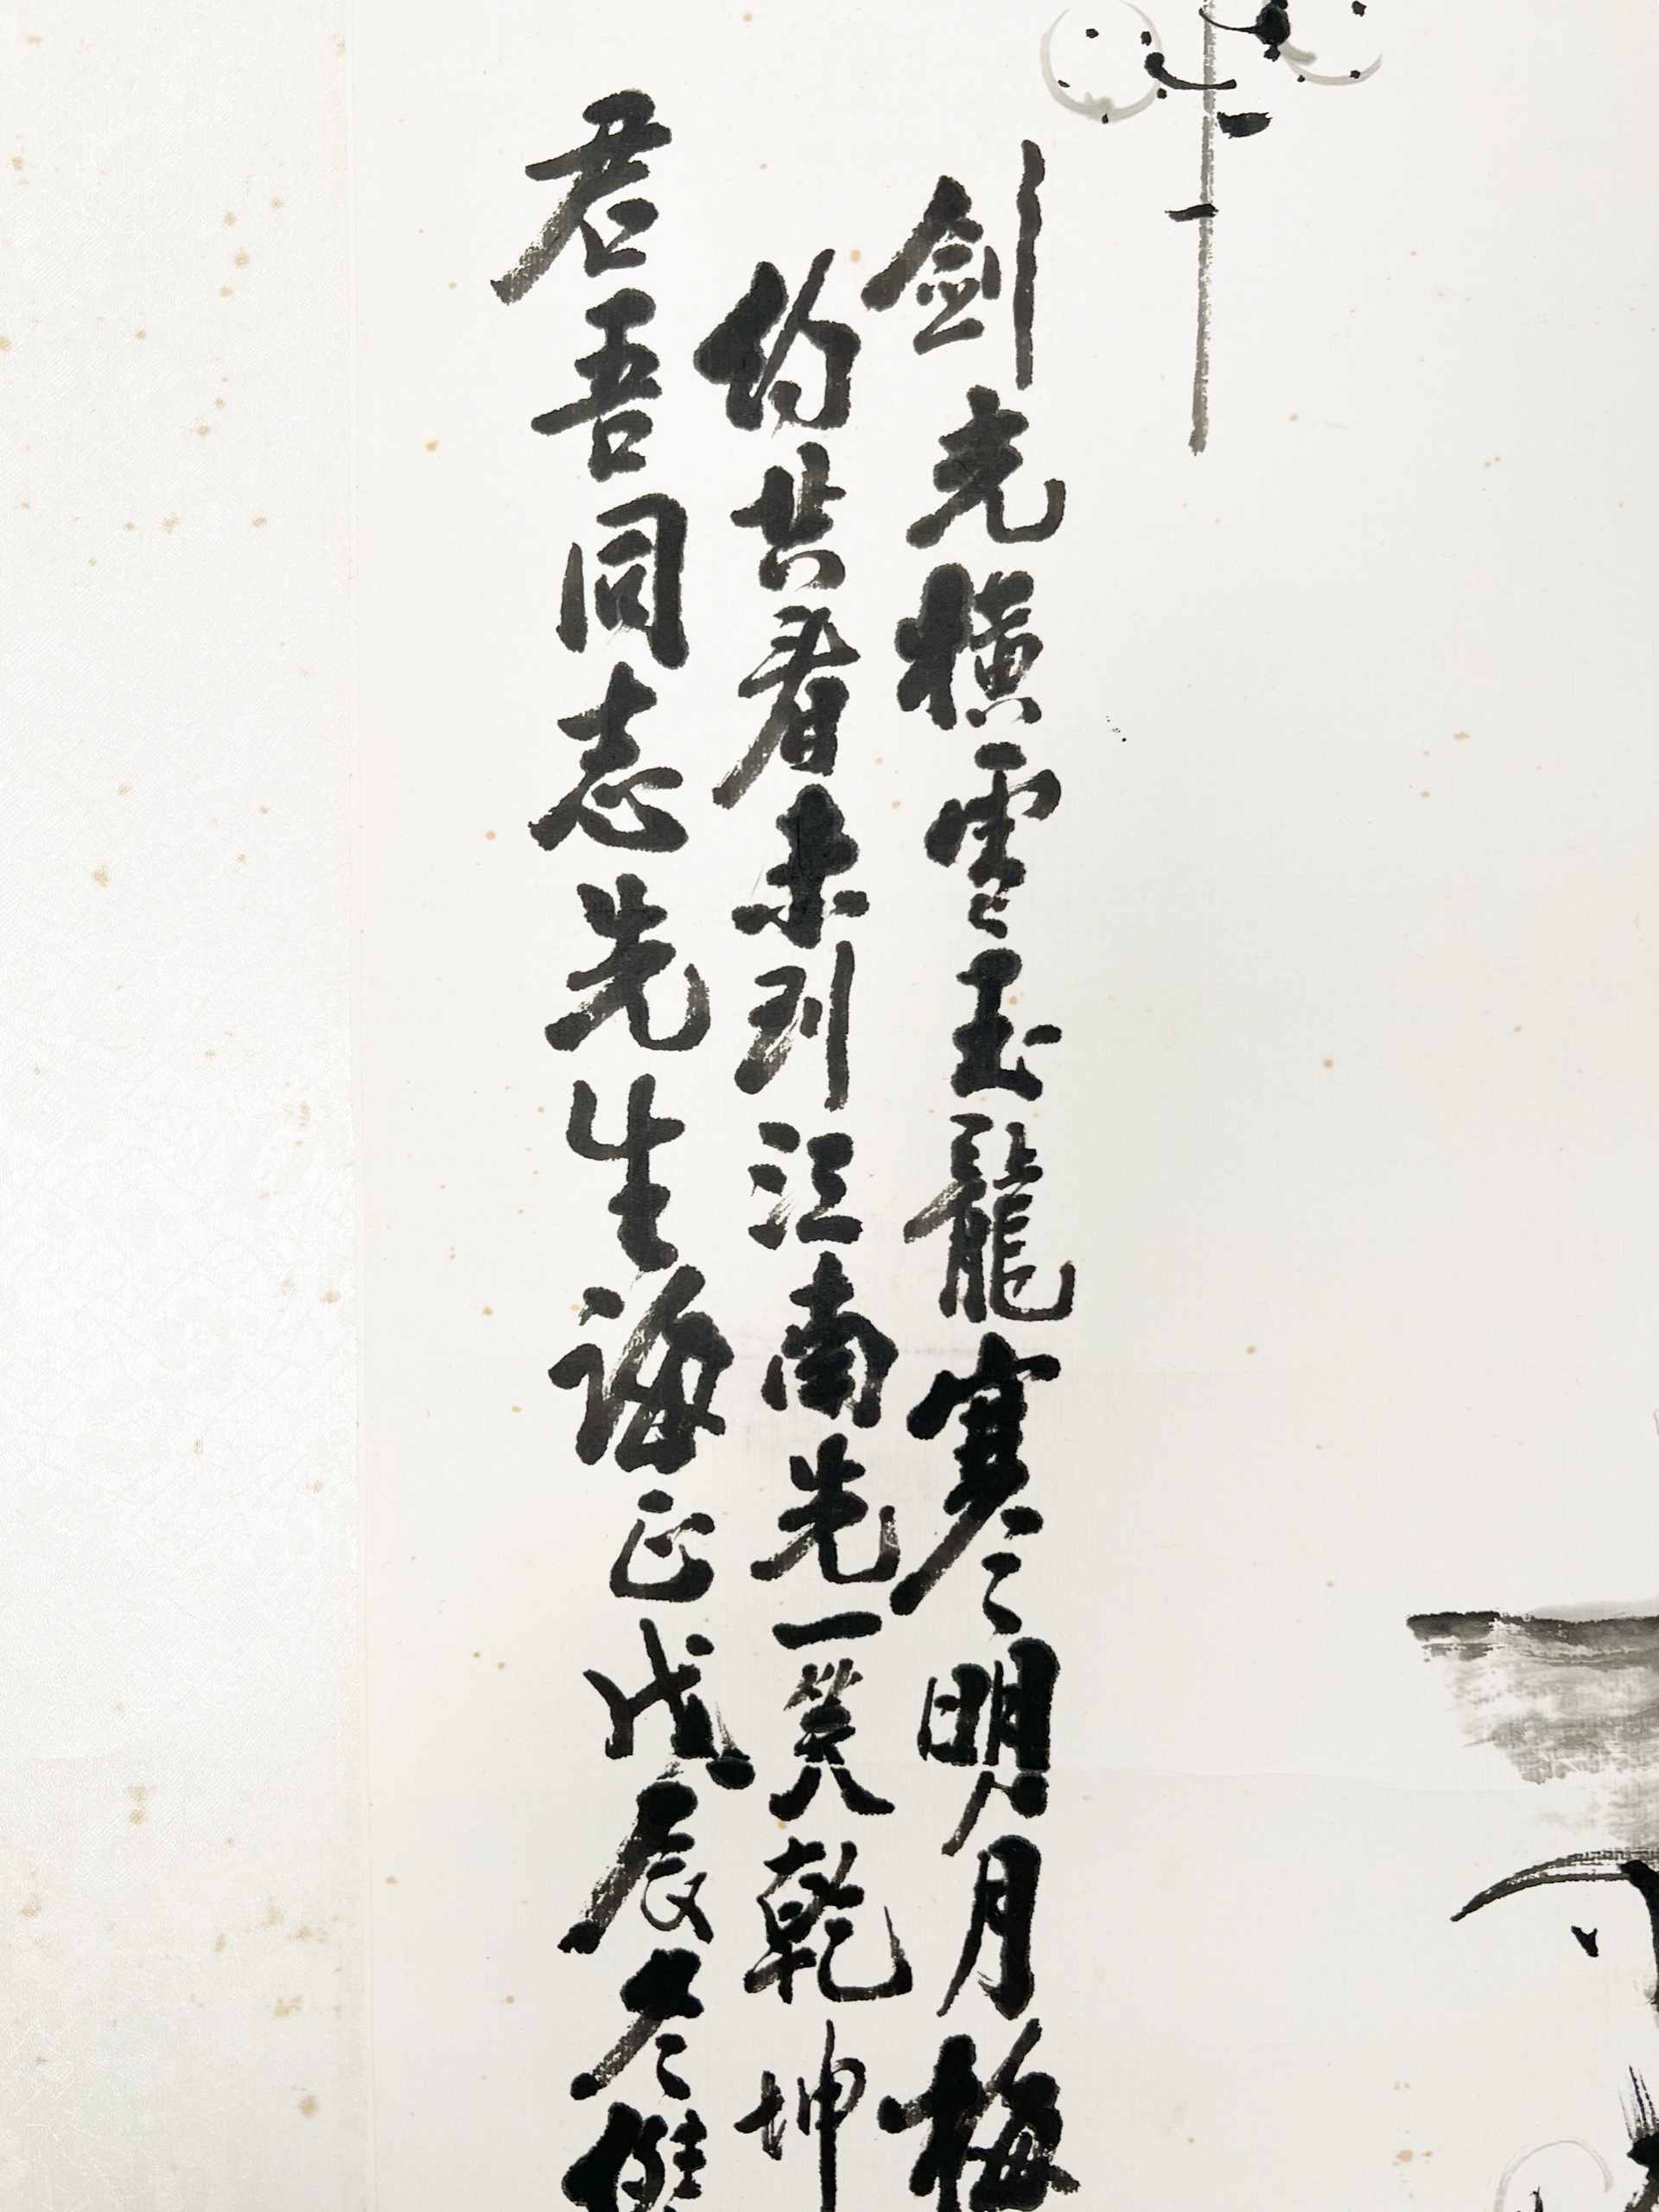 剑光橫雪玉龍寒明月梅
約共看未到江南先一笑乾坤
君吾同志先生誨正戊辰冬